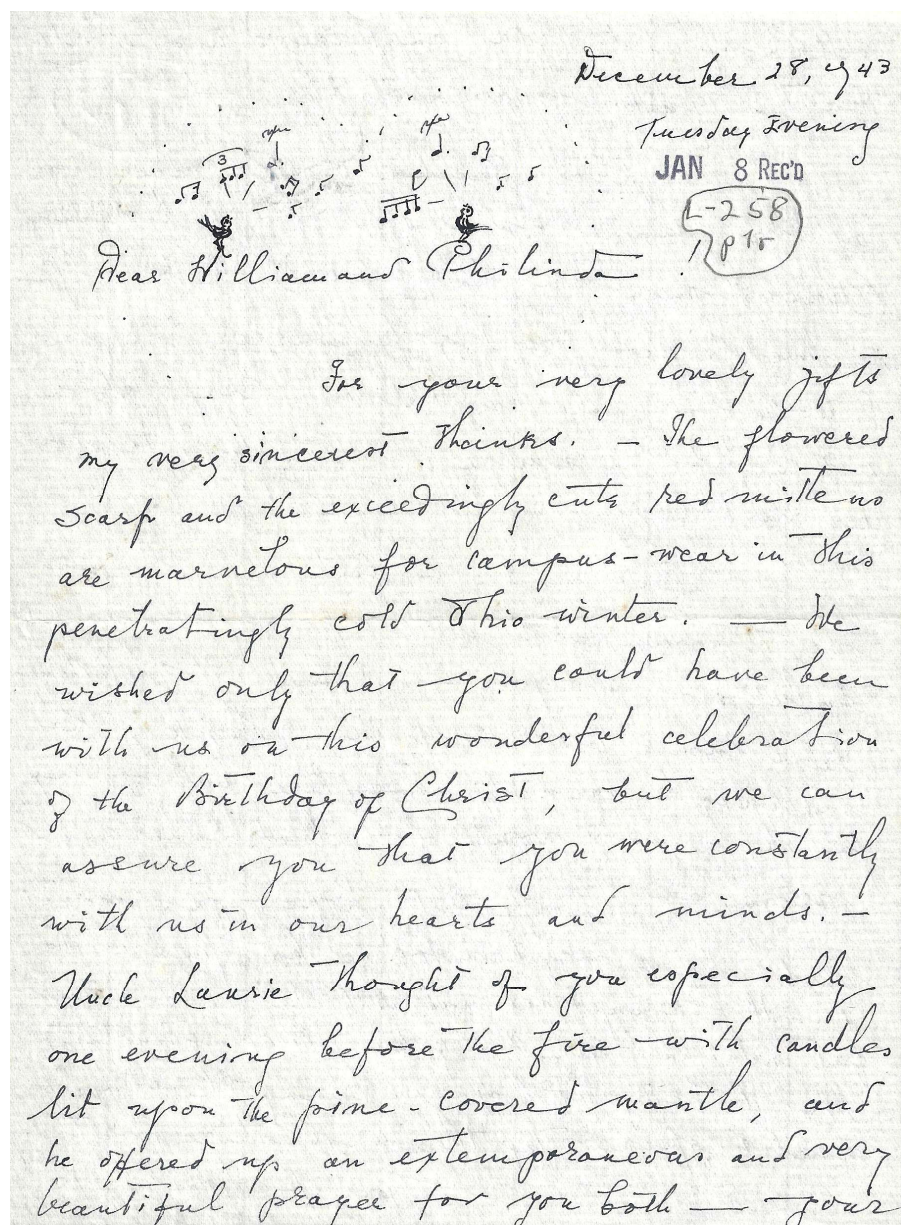 December 28, 1943
Tuesday Evening
JAN 8 REC'D
L-258
p1r
3
Dear William and Philinda!
For your very lovely gifts
my very sincerest thanks. — The flowered
scarf and the exceedingly cute red mittens
are marvelous for campus-wear in this
penetratingly cold Ohio winter. — We
wished only that you could have been
with us on this wonderful celebration
of the Birthday of Christ, but we can
assure you that you were constantly
with us in our hearts and minds. —
Uncle Laurie thought of you especially
one evening before the fire with candles
lit upon the pine-covered mantle, and
he offered up an extemporaneous and very
beautiful prayer for you both — your